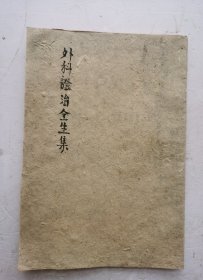 外科證治全生集